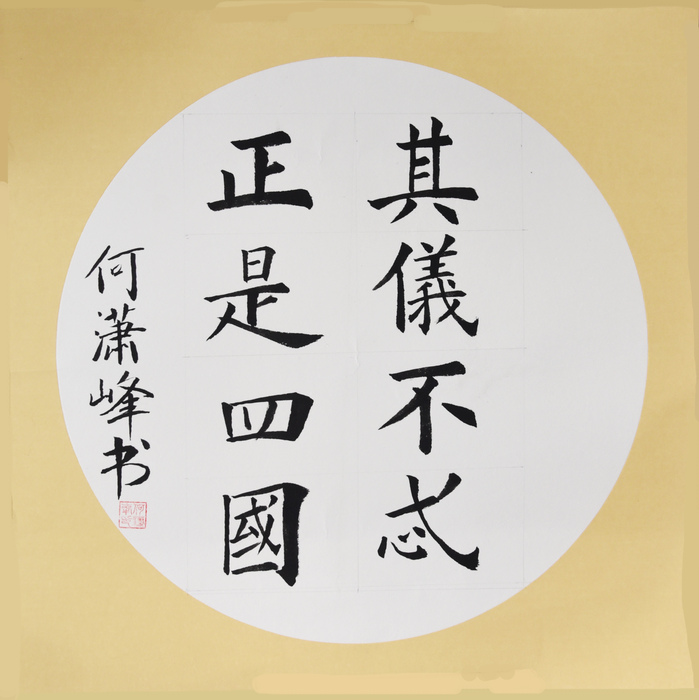 其儀不忒
正是四國
何潇峰书